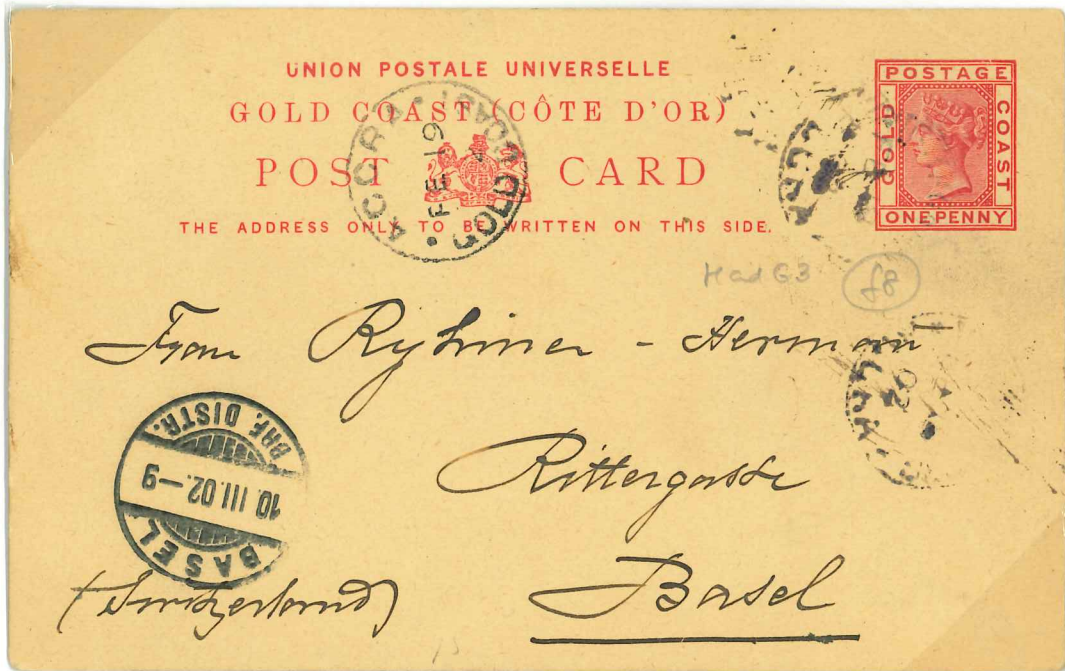 UNION POSTALE UNIVERSELLE
GOLD COAST (CÔTE D'OR)
POST CARD
THE ADDRESS ONLY TO BE WRITTEN ON THIS SIDE.
POSTAGE
GOLD
COAST
ONE PENNY
ACCRA
FE 19
GOLD COAST
G3
£8
Frau Ryhiner - Hermann
Rittergasse
Basel
(Switzerland)
BASEL
10 III.02.-9
BRF. DISTR.